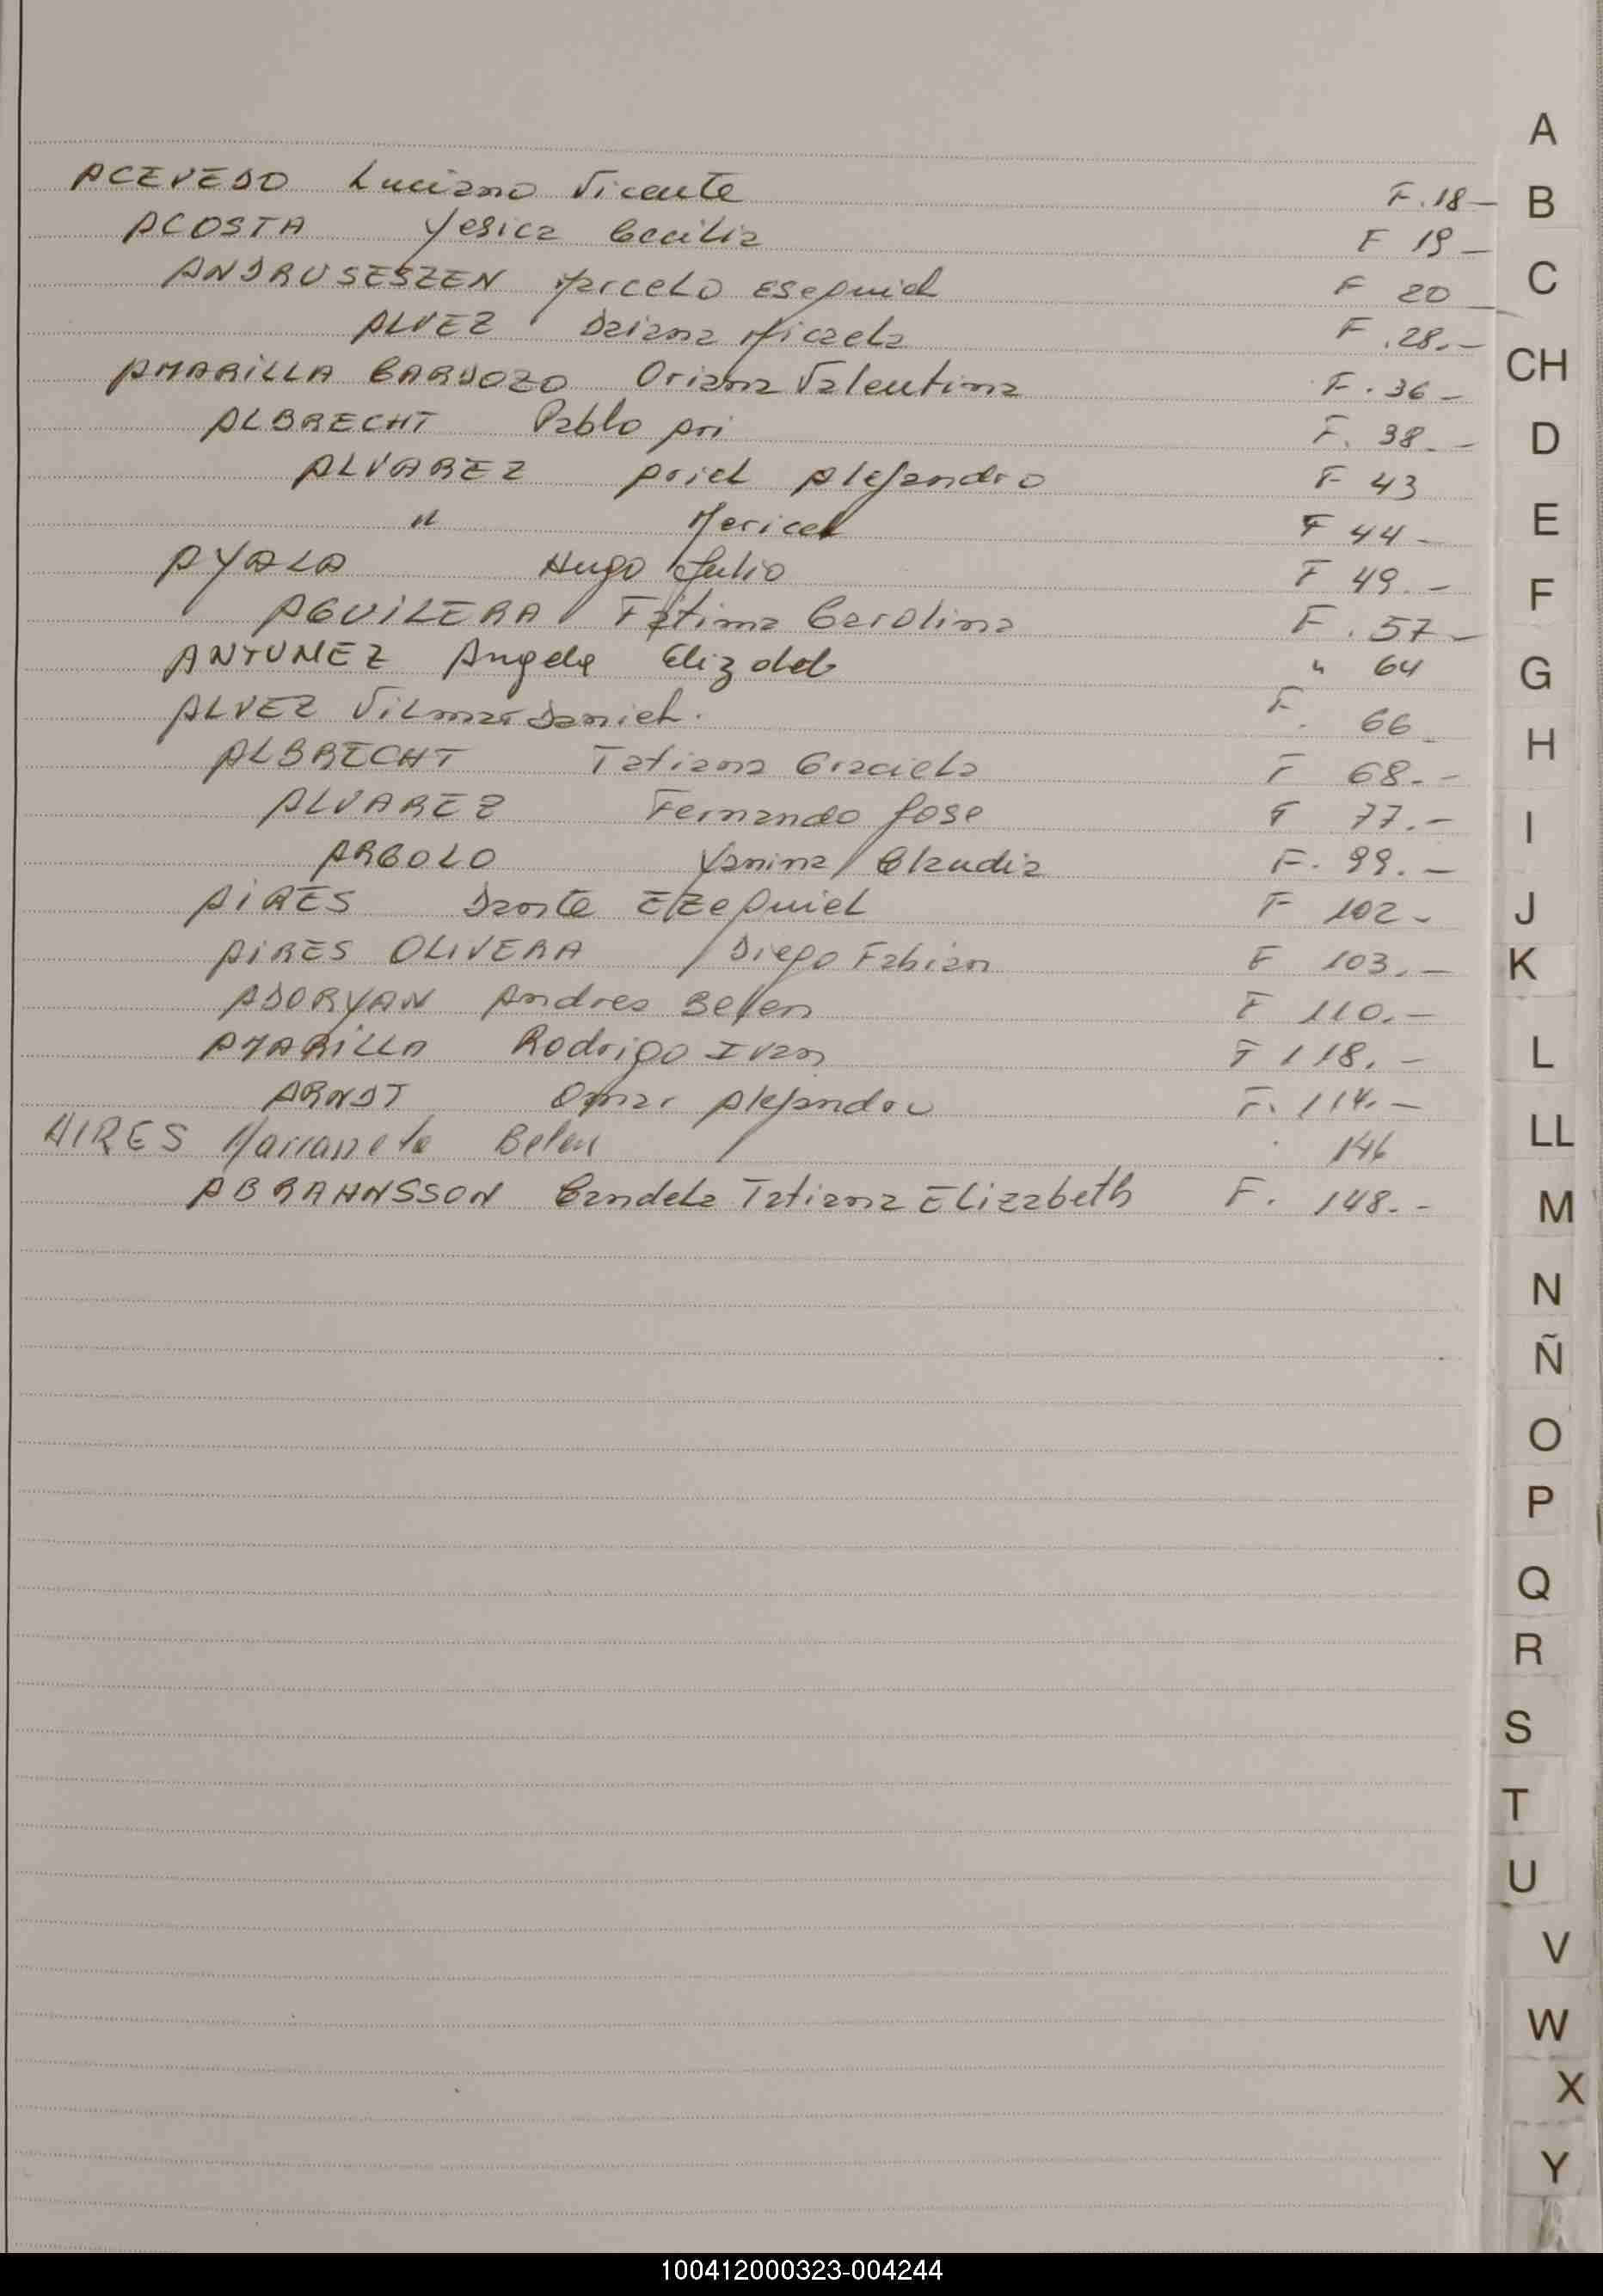 ACEVEDO Luciano Vicente F. 18 –
ACOSTA Yesica Cecilia F 19 –
ANDRUSESZEN Marcelo Esequiel F 20
ALVEZ Daiana Micaela F. 28. –
AMARILLA CARDOZO Oriana Valentina F. 36 –
ALBRECHT Pablo Ari F. 38. –
ALVAREZ Ariel Alejandro F 43
" Maricel F 44 –
AYALA Hugo Julio F 49. –
AGUILERA Fatima Carolina F. 57 –
ANTUNEZ Angela Elizabet " 64
ALVEZ Vilmar Daniel. F. 66
ALBRECHT Tatiana Graciela F 68. –
ALVAREZ Fernando Jose F 77. –
ARGOLO Yanina Claudia F. 99. –
AIRES Dante EZEquiel F 102 –
AIRES OLIVERA Diego Fabian F 103. –
ADORYAN Andrea Belen F 110. –
AMARILLA Rodrigo Ivan F 118. –
ARNDT Omar Alejandro F. 114. –
AIRES Belen 146
ABRAHNSSON Candela Tatiana Elizabeth F. 148. –
A
B
C
CH
D
E
F
G
H
I
J
K
L
LL
M
N
Ñ
O
P
Q
R
S
T
U
V
W
X
Y
100412000323-004244